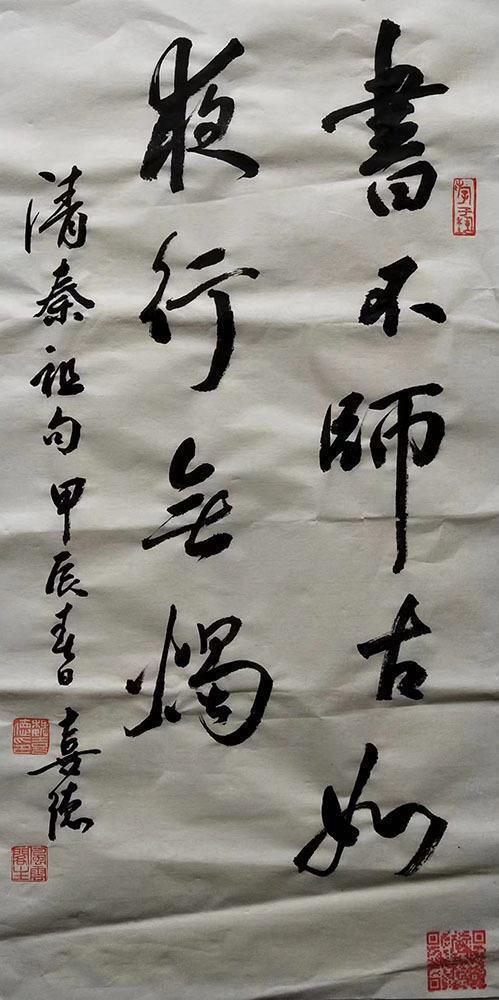 書不師古如
夜行無燭
清秦祖句甲辰春日喜德